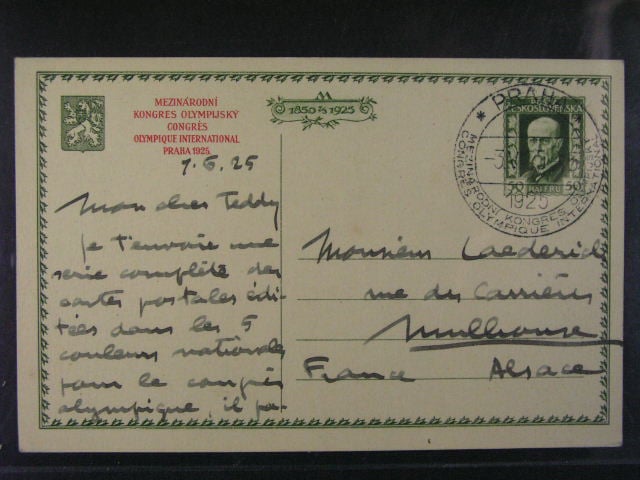 MEZINÁRODNÍ
KONGRES OLYMPIJSKÝ
CONGRÈS
OLYMPIQUE INTERNATIONAL
PRAHA 1925.
1850 7/3 1925
* PRAHA
1925
MEZINÁRODNÍ KONGRES
CONGRÈS OLYMPIQUE INTERNATIONAL
ČESKOSLOVENSKÁ
50 HALÉŘŮ 50
1.6.25
Mon cher Teddy
je t'envoie une
serie complète des
cartes postales édi-
tées dans les 5
couleurs nationales
pour le congrès
olympique, il pa-
Monsieur Laederich
rue des Carrières
Mulhouse
France Alsace